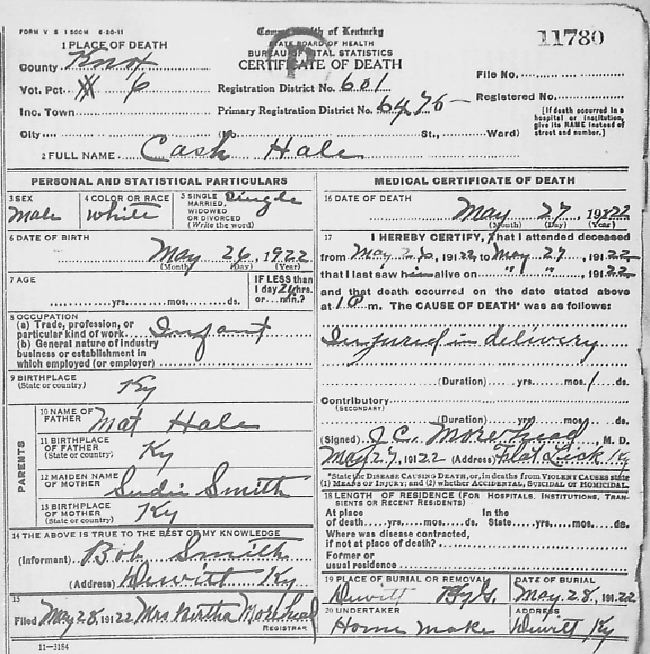 FORM V S 1 500M 6-20-21
Commonwealth of Kentucky
STATE BOARD OF HEALTH
BUREAU OF VITAL STATISTICS
CERTIFICATE OF DEATH
11780
1 PLACE OF DEATH
County Knox
Vot. Pct. 6
Inc. Town
City (No. St., Ward)
Registration District No. 601
Primary Registration District No. 6475
File No.
Registered No.
[If death occurred in a
hospital or institution,
give its NAME instead of
street and number.]
2 FULL NAME Cash Hale
PERSONAL AND STATISTICAL PARTICULARS
3 SEX Male
4 COLOR OR RACE White
5 SINGLE MARRIED, WIDOWED OR DIVORCED (Write the word) Single
6 DATE OF BIRTH
May 26, 1922
(Month) (Day) (Year)
7 AGE
yrs. mos. ds.
IF LESS than
1 day 24 hrs.
or min.?
8 OCCUPATION
(a) Trade, profession, or
particular kind of work Infant
(b) General nature of industry
business or establishment in
which employed (or employer)
9 BIRTHPLACE
(State or country) Ky
PARENTS
10 NAME OF
FATHER Mat Hale
11 BIRTHPLACE
OF FATHER
(State or country) Ky
12 MAIDEN NAME
OF MOTHER Sudie Smith
13 BIRTHPLACE
OF MOTHER
(State or country) Ky
14 THE ABOVE IS TRUE TO THE BEST OF MY KNOWLEDGE
(Informant) Bob Smith
(Address) Dewitt Ky
15
Filed May 28, 19122 Mrs Birtha Morehead
REGISTRAR
11-3184
MEDICAL CERTIFICATE OF DEATH
16 DATE OF DEATH
May 27 19122
(Month) (Day) (Year)
17 I HEREBY CERTIFY, that I attended deceased
from May 26, 19122 to May 27, 19122
that I last saw him alive on " " , 19122
and that death occurred on the date stated above
at 1 P m. The CAUSE OF DEATH* was as follows:
Injured in delivery
(Duration) yrs. mos. 1 ds.
Contributory
(SECONDARY)
(Duration) yrs. mos. ds.
(Signed) J.C. Morehead M. D.
May 27, 19122 (Address) Flat Lick Ky
*State the DISEASE CAUSING DEATH, or, in deaths from VIOLENT CAUSES state
(1) MEANS OF INJURY; and (2) whether ACCIDENTAL, SUICIDAL OR HOMICIDAL.
18 LENGTH OF RESIDENCE (FOR HOSPITALS, INSTITUTIONS, TRANSIENTS OR RECENT RESIDENTS)
At place In the
of death yrs. mos. ds. State yrs. mos. ds.
Where was disease contracted,
if not at place of death?
Former or
usual residence
19 PLACE OF BURIAL OR REMOVAL
Dewitt
DATE OF BURIAL
May 28, 19122
20 UNDERTAKER
Home make
ADDRESS
Dewitt Ky